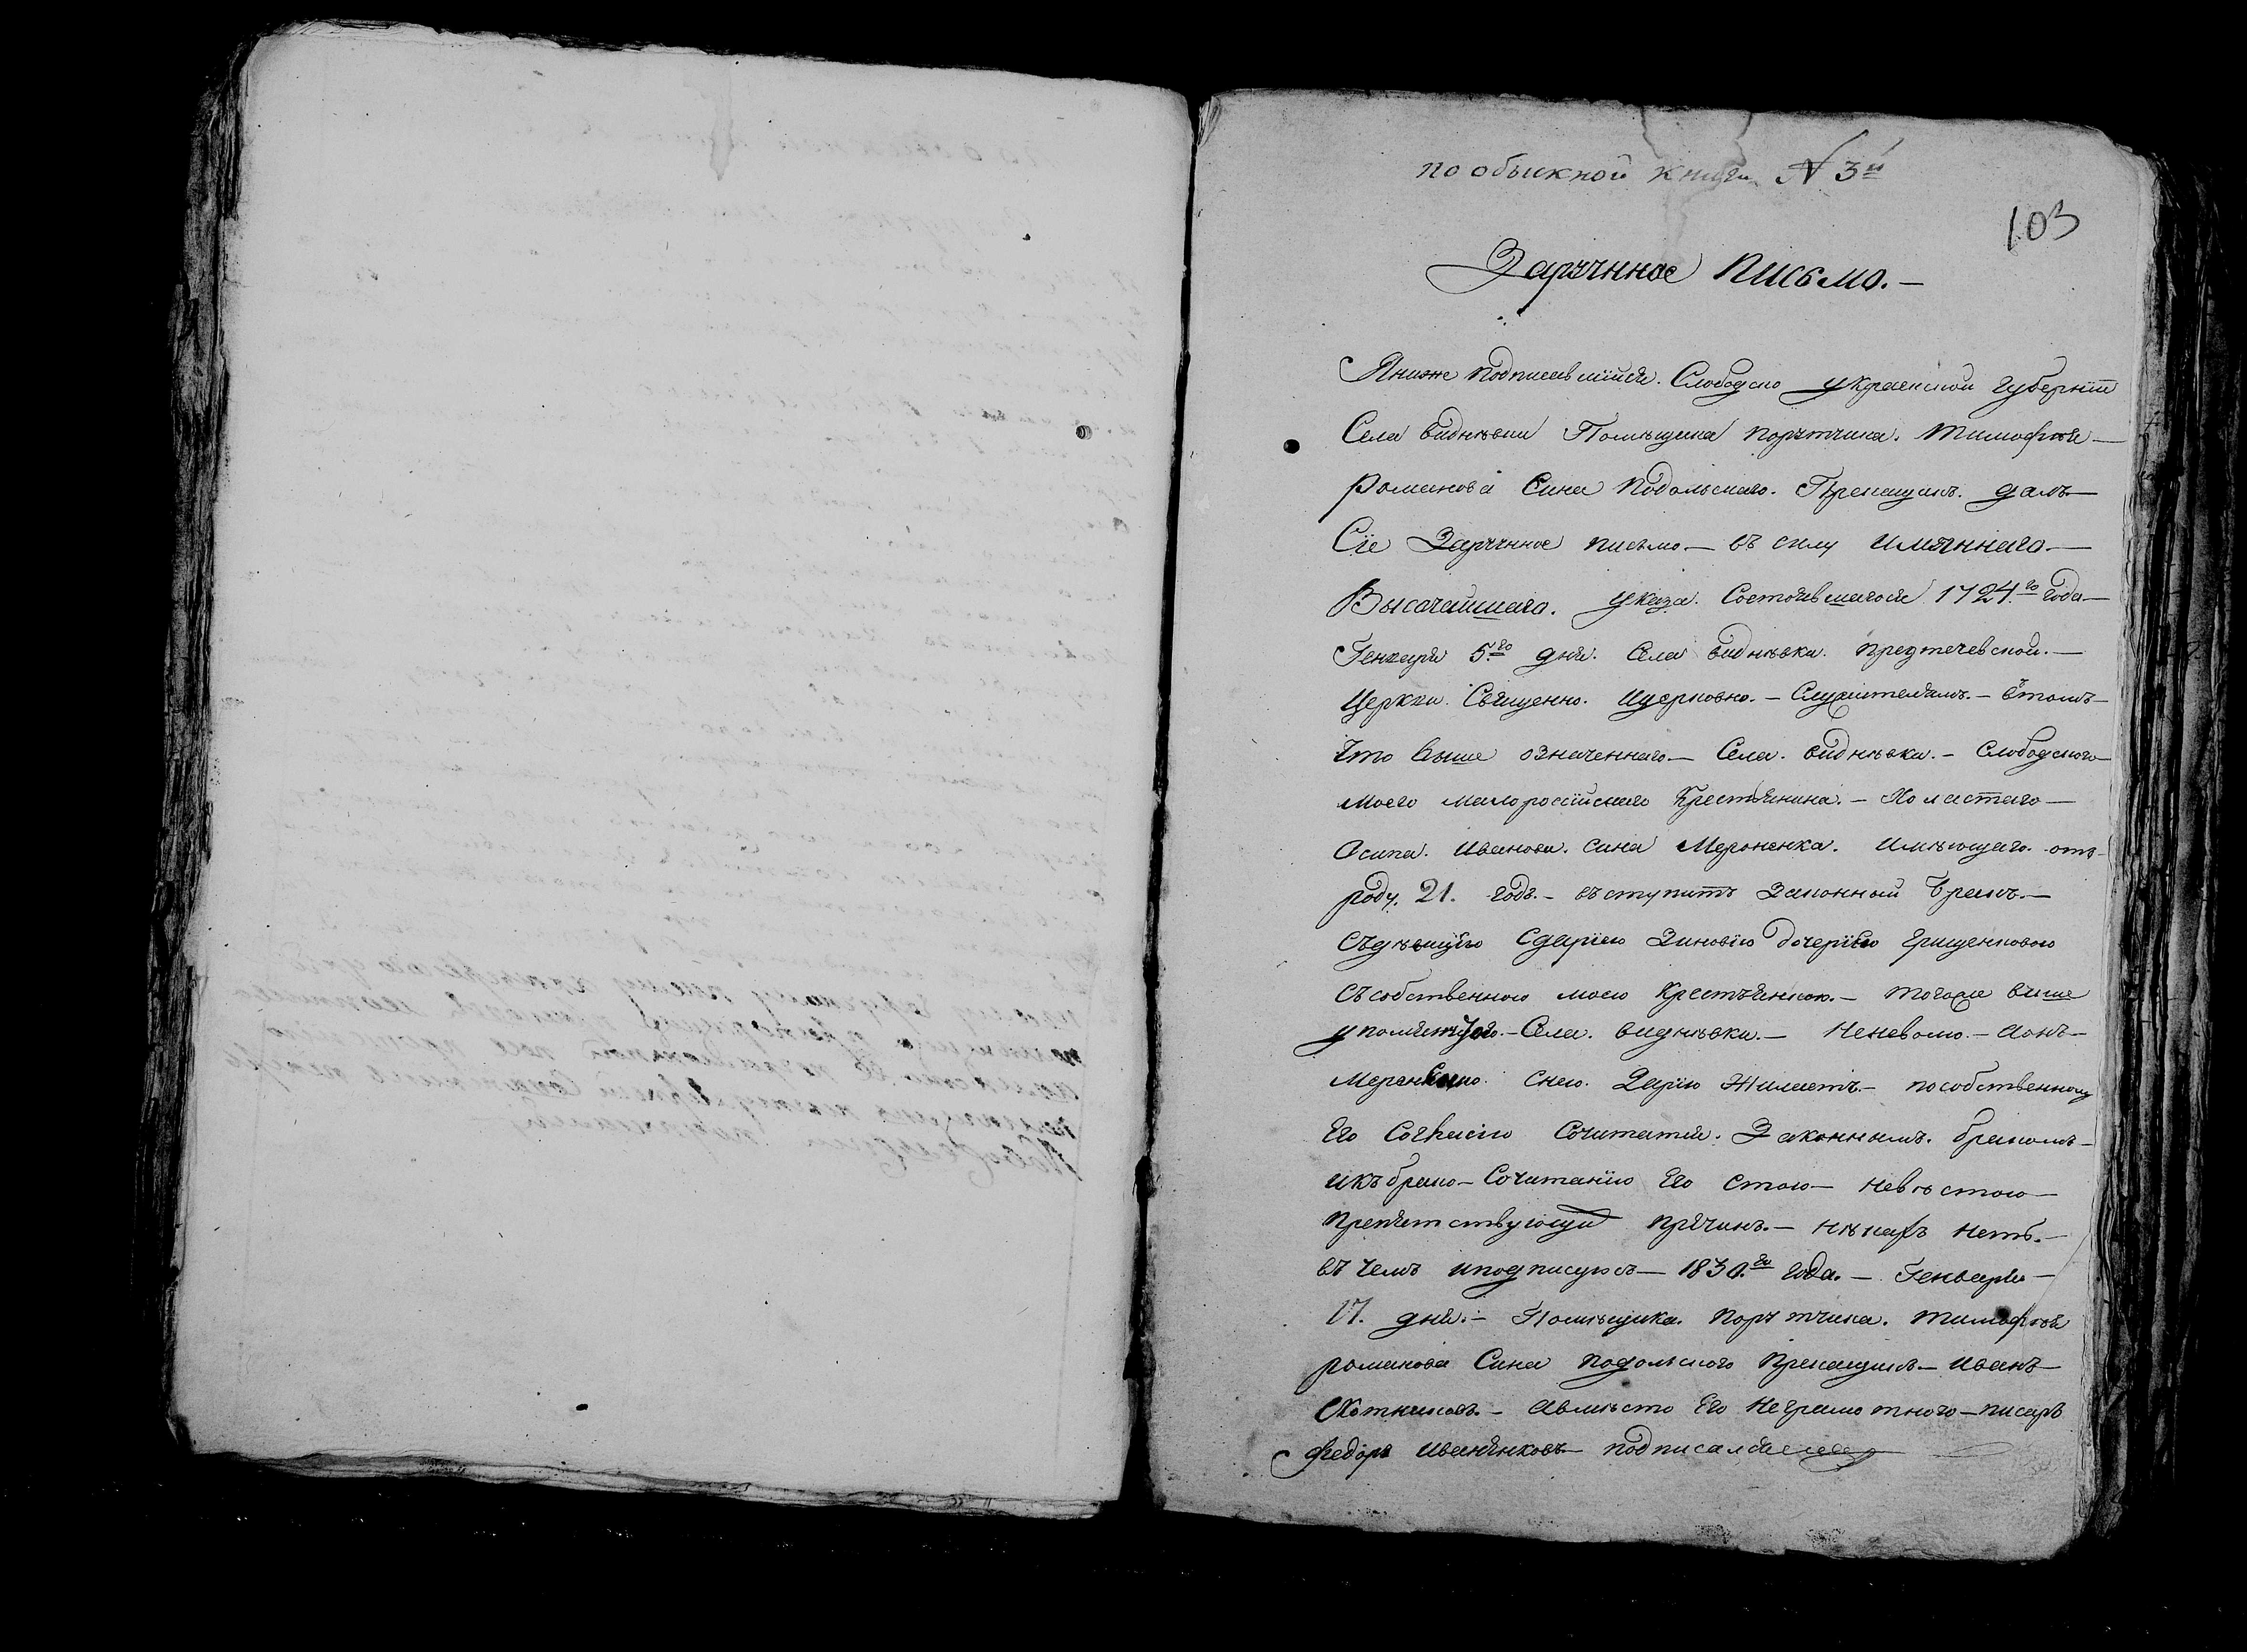 по обыскной книги № 3й
103
Заручное письмо.—
Я ниже подписавшійся. Слободско украенской губерніи
Села виднѣвки Помѣщика порутчика. тимофѣя—
романова сина подольскаго. Прикащикъ. далъ—
Сіе Заручное письмо.— въ силу имяннаго.—
Высочайшаго. указа. Состоявшагося 1724.го года—
Генваря 5.го дня. Села виднѣвки. предтечевской.—
Церкви. Священно. ицерковно.— Служителямъ.— втомъ—
Что выше означеннаго— Села. виднѣвки.— Слободского—
моего малороссійскаго Крестянина.— Холостаго—
Осипа. Иванова. сина Мероненка. имѣющаго. отъ—
роду. 21. годъ.— въступитъ Законный бракъ.—
Съдѣвицею Сдаріею Зиновіею дочеріею грищенковою
Съсобственною моею Крестъянкою.— тогоже выше
упомянутого.— Села. виднѣвки.— Неневолю.— Аонъ—
Меронѣнко. Снею. Даріею Жилаетъ.— пособственному
Его Согласію Сочитатся. Законнымъ. бракомъ—
икъ брако— Сочитанію Его Стою— невѣстою—
препятствующи причинъ.— нѣкахъ нетъ.—
въ чемъ иподписуюсъ— 1830.го года.— Генваря—
17. дня.— Помѣщика. порутчика. тимофѣя
романова Сина подольского Прикащикъ— иванъ—
Скотниковъ.— Авмѣсто Его Неграмотного— писаръ
федоръ иванѣнковъ— подписался